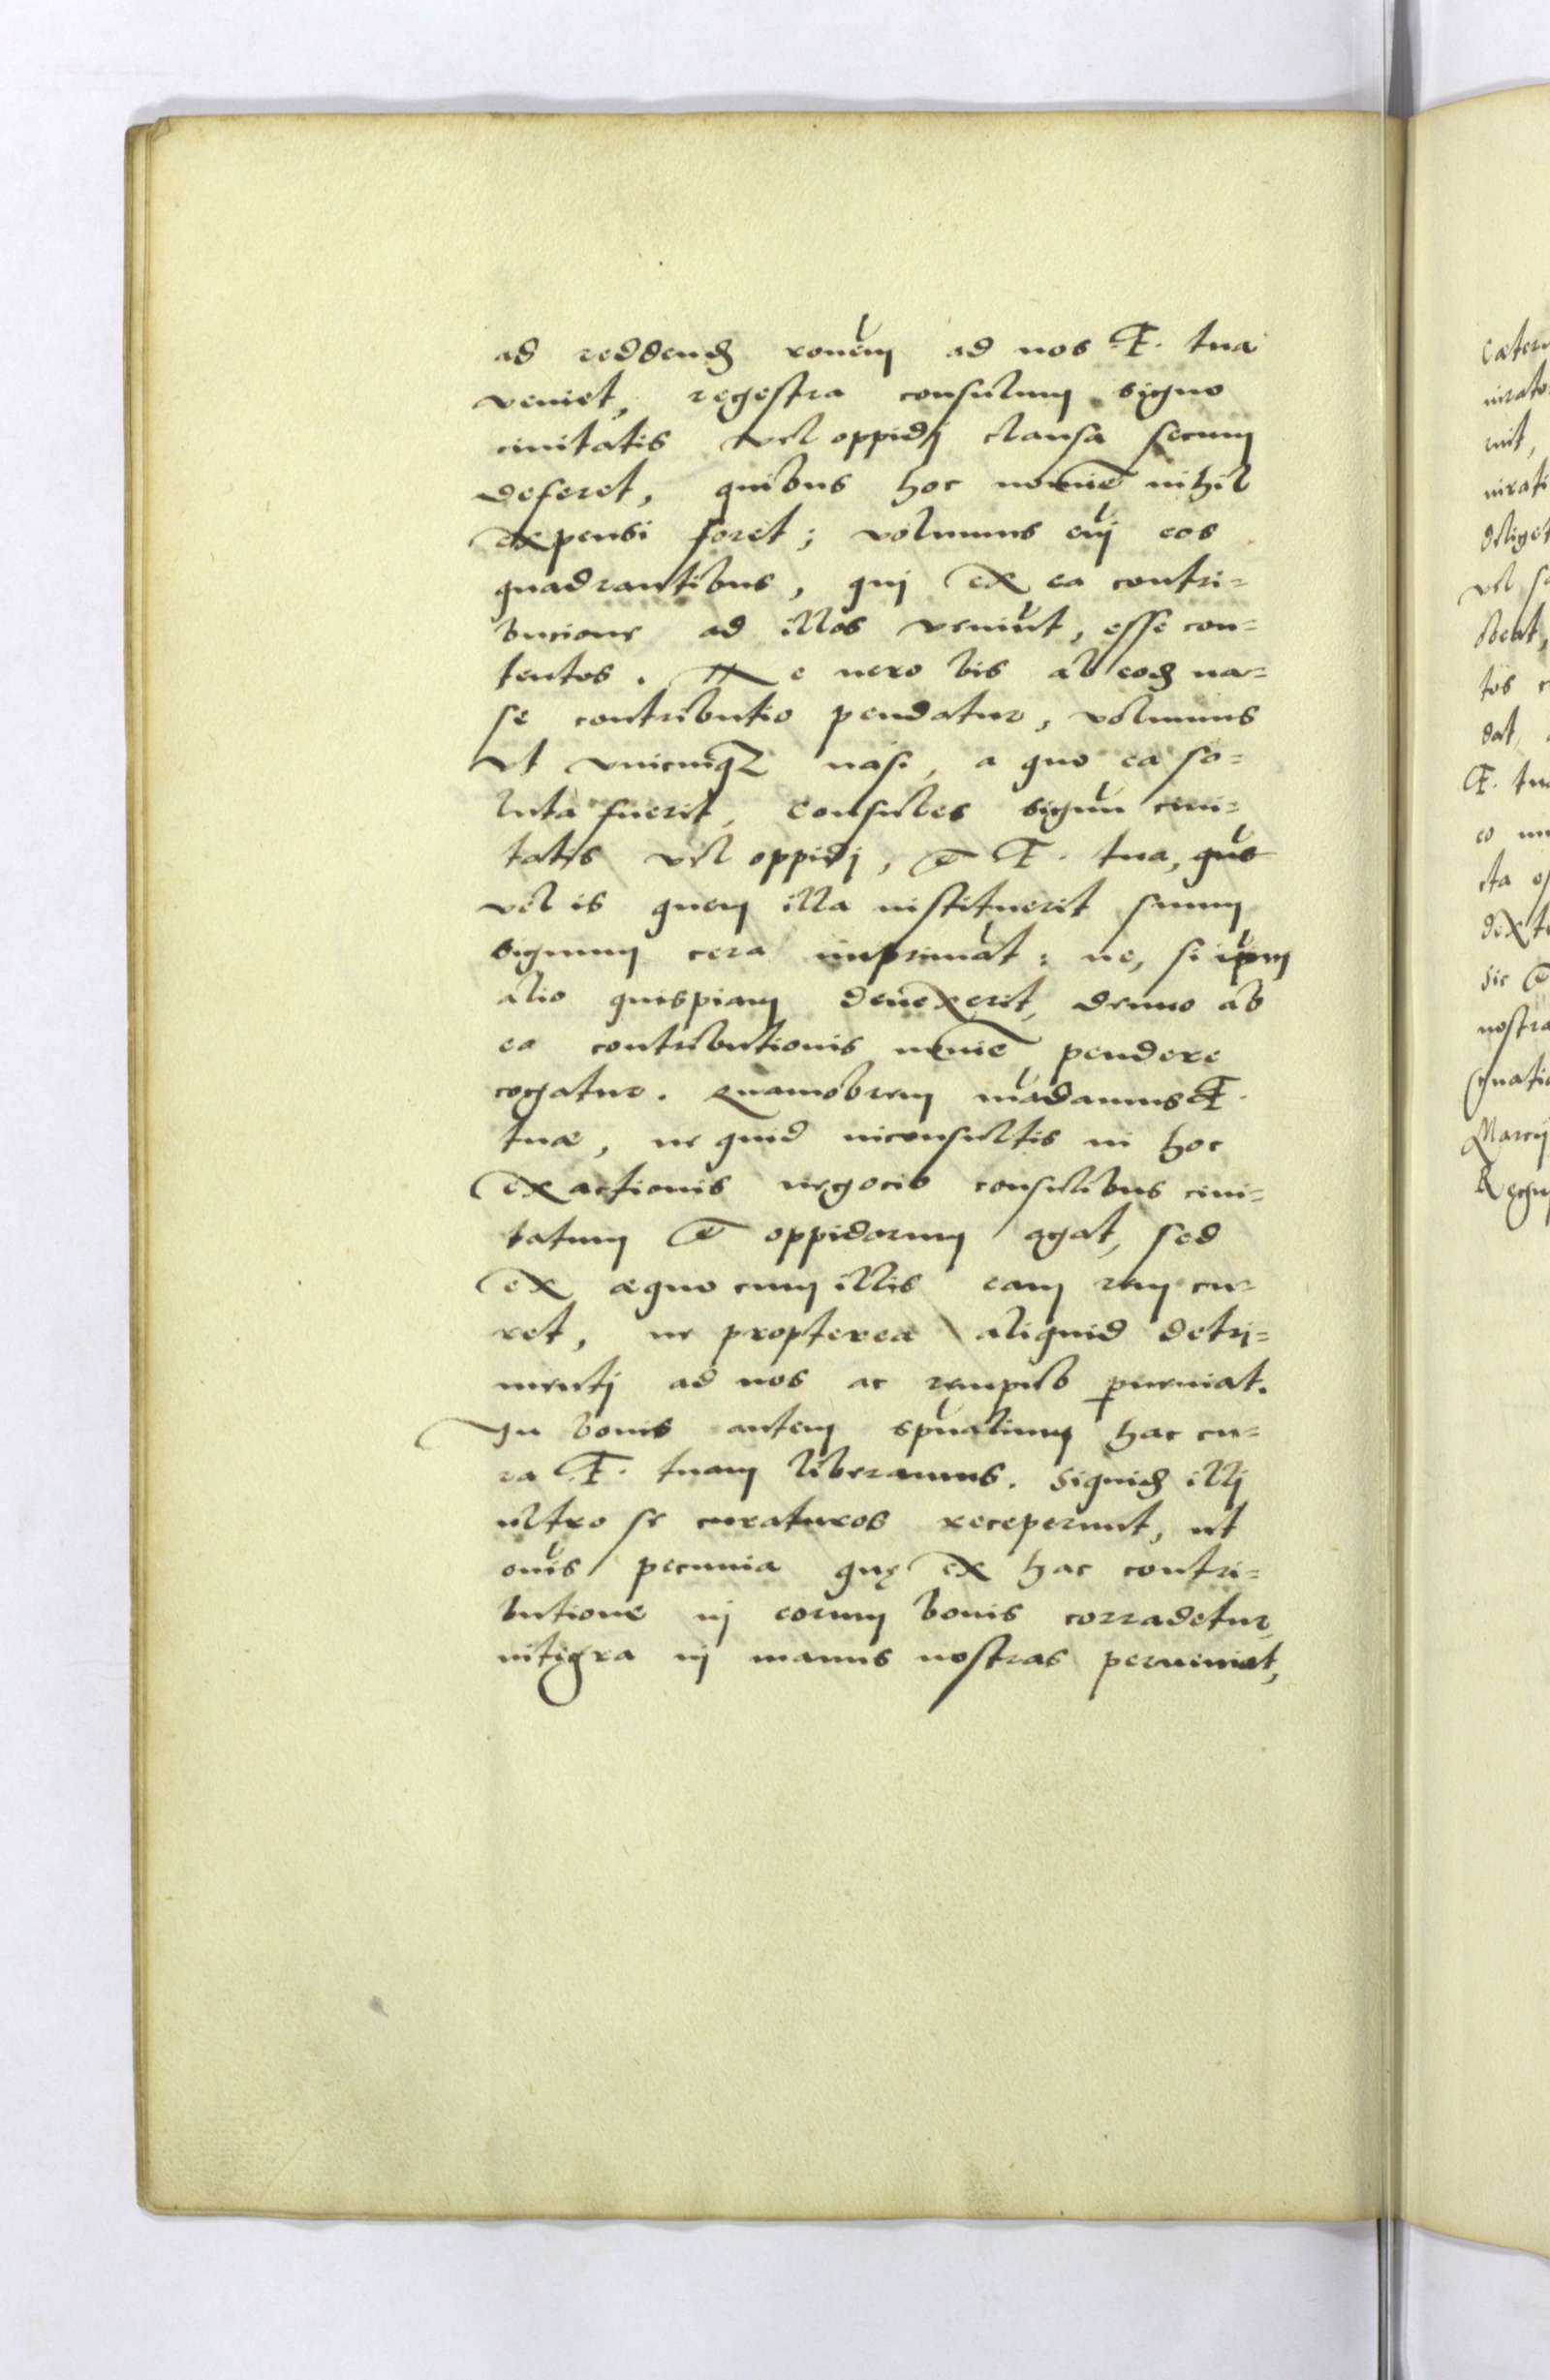 ad reddend ronem ad nos F. tua
veniet, regestra consulum signo
ciuitatis vel oppidj clausa secum
deferet, quibus hoc nomie nihil
expensi foret; volumus enj eos
quadrantibus, quj ex ea contri=
bucione ad illos veniut, esse con=
tentos. Ne uero bis ab eod va=
se contributio pendatur, volumus
vt vnicuiq vasi, a quo ea so=
luta fuerit, Consules signu ciui=
tatis vel oppidj, et F. tua, aut
vel is quem illa instituerit suum
signum cera imprimat: ne, si ipm
alio quispiam deuexerit, denuo ab
ea contributionis nomie pendere
cogatur. Quamobrem madamus F.
tuae, ne quid inconsultis in hoc
exactionis negocio consulibus ciui=
tatum et oppidorum agat, sed
ex aequo cum illis eam rem cu=
ret, ne propterea aliquid detri=
mentj ad nos ac rempub perueniat.
In bonis autem spualium hac cu=
ra F. tuam liberamus. Siquid illj
ultro se curaturos receperunt, ut
ois pecunia quę ex hac contri=
butione in eorum bonis corradetur,
integra in manus nostras perueniat,
Marcij